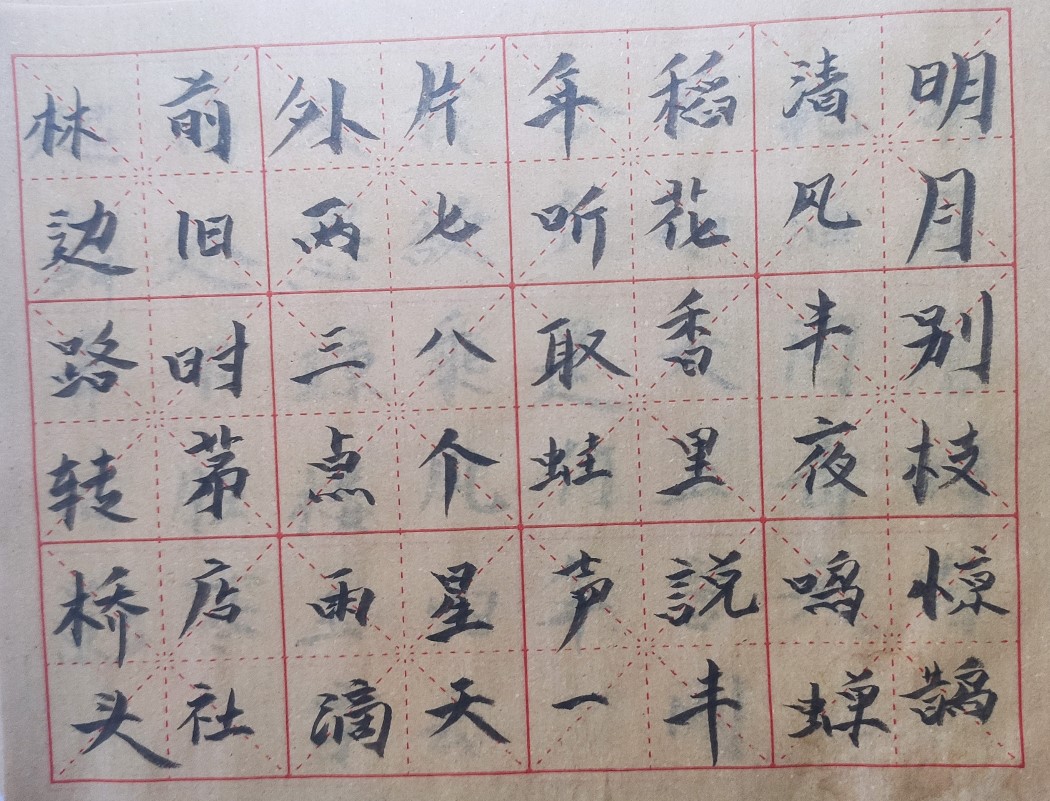 明月别枝惊鹊
清风丰夜鸣蝉
稻花香里説丰
年听取蛙声一
片七八个星天
外两三点雨滴
前旧时茅店社
林边路转桥头